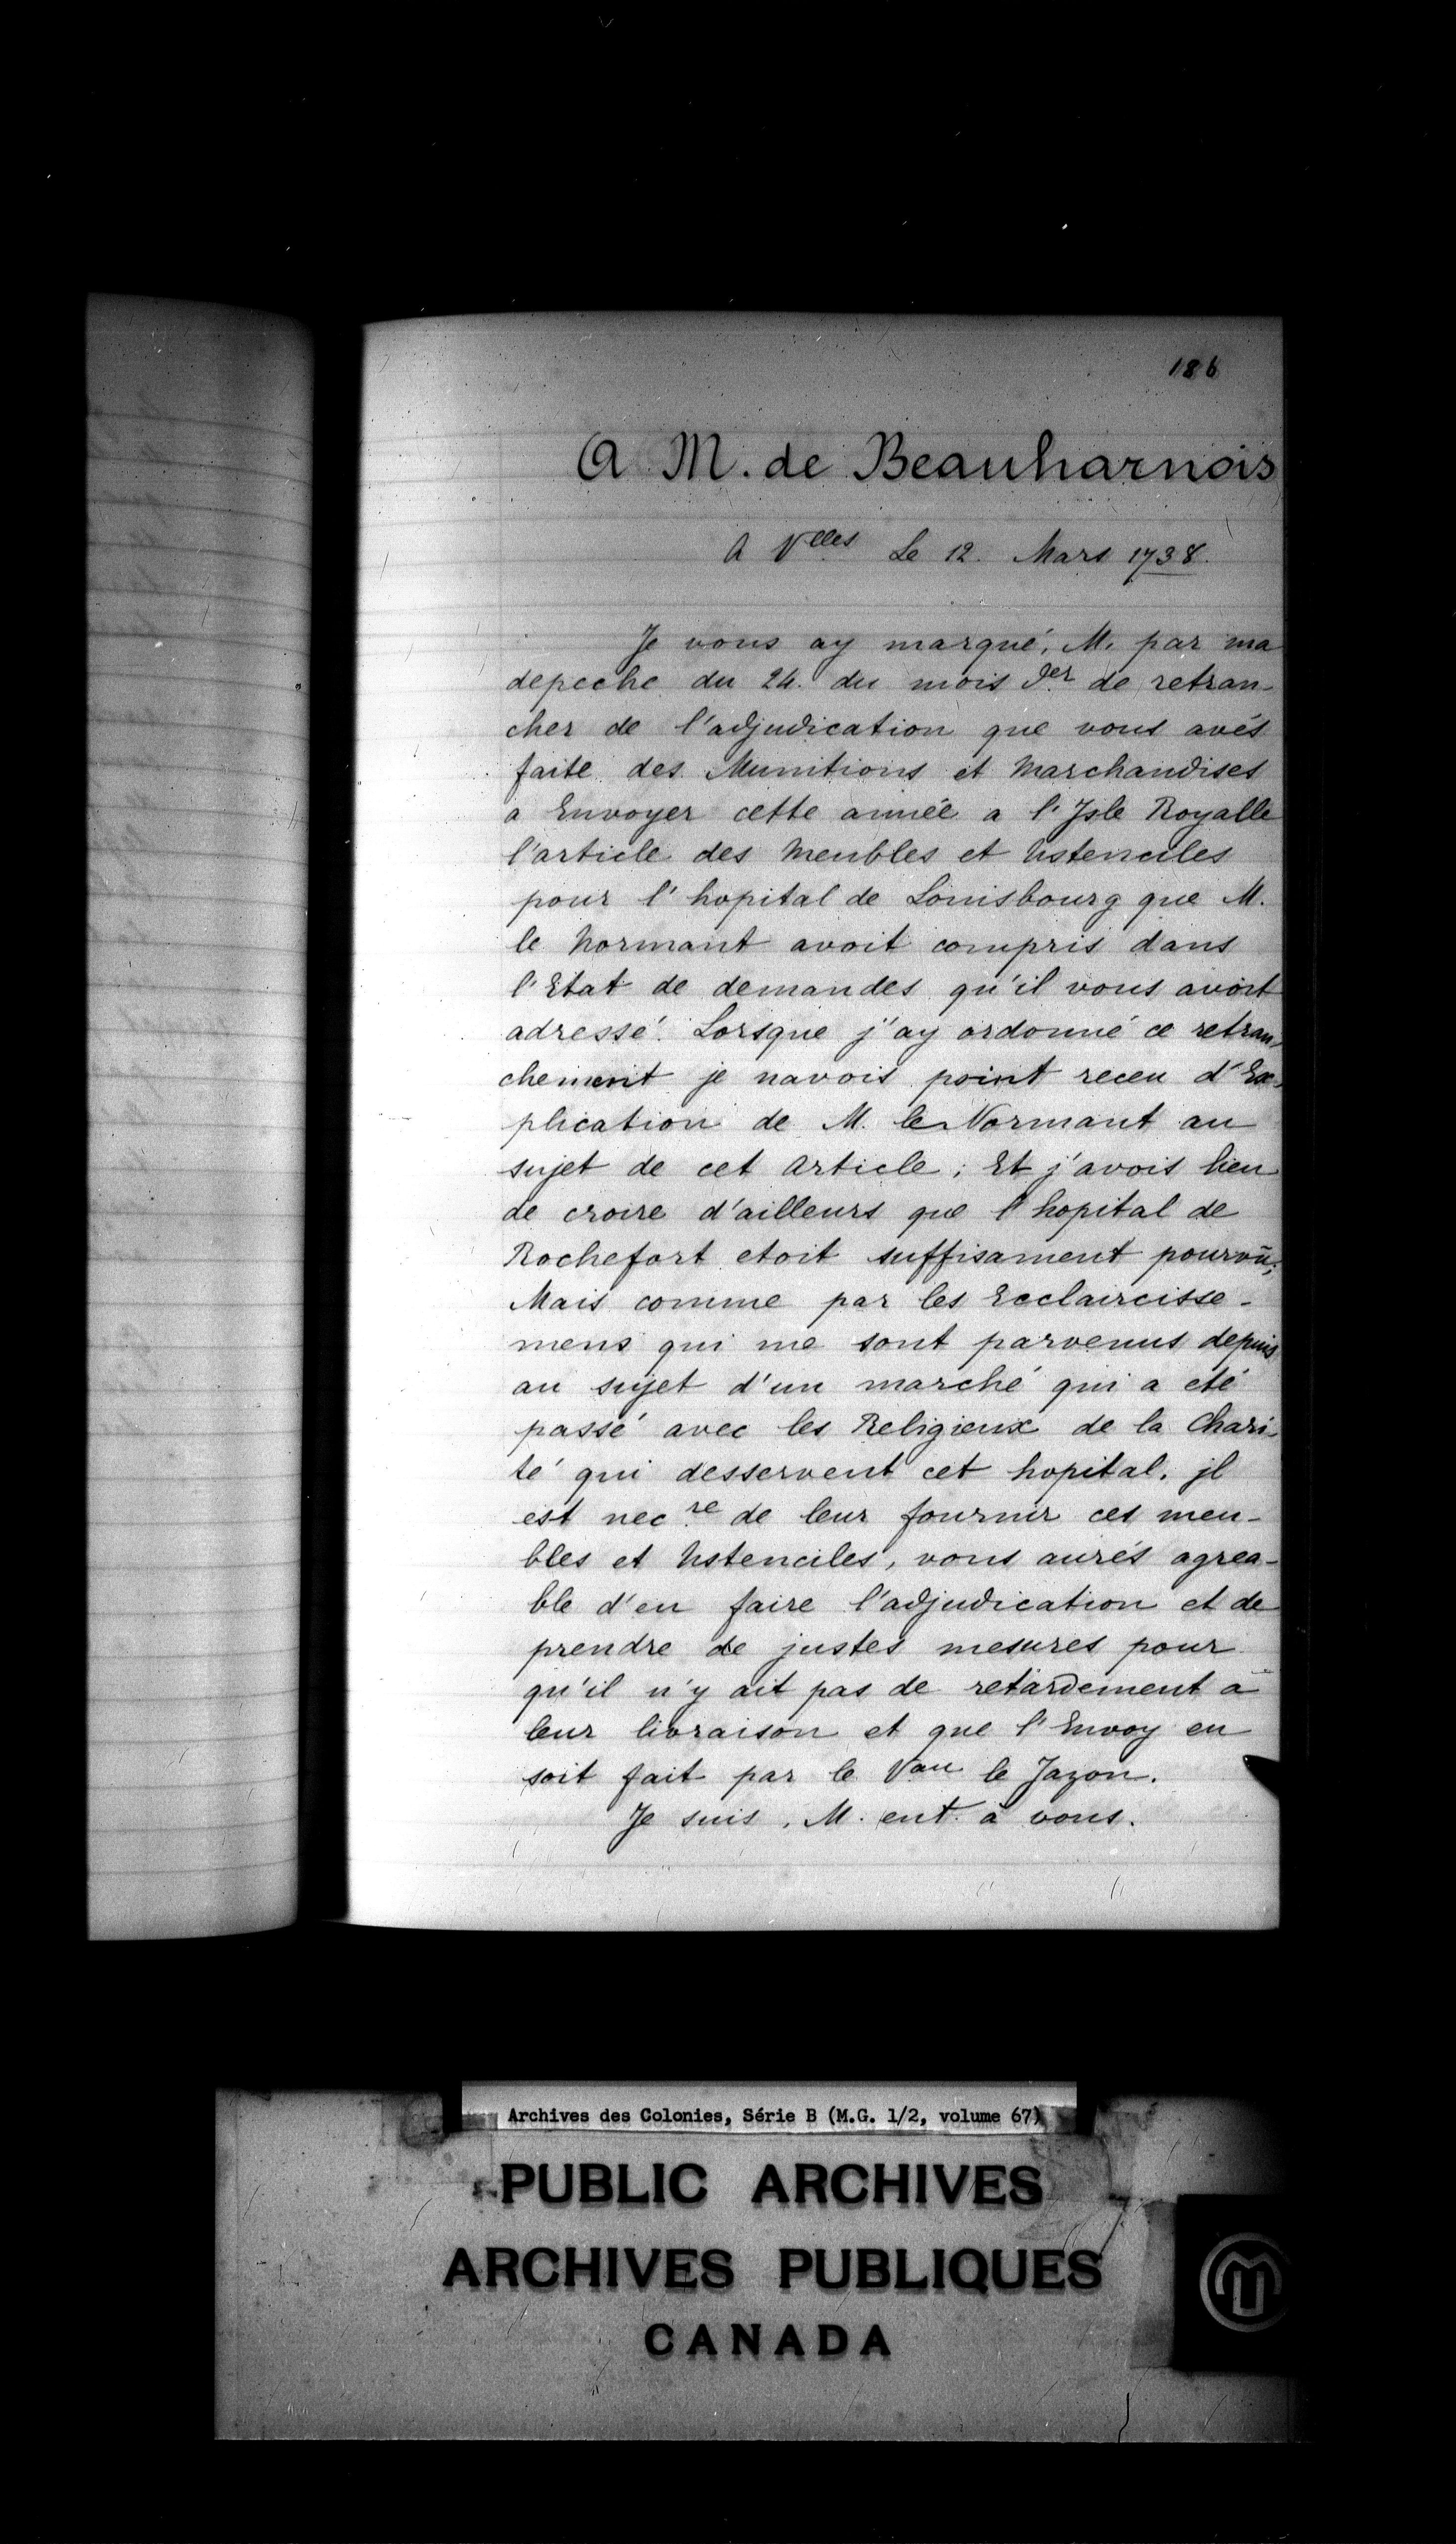 186
A M. de Beauharnois
A Vlles Le 12. Mars 1738.
Je vous ay marqué, M. par ma
depeche du 24. du mois der de retran-
cher de l'adjudication que vous avés
faite des Munitions et Marchandises
a Envoyer cette année a l'Isle Royalle
l'article des Meubles et Ustenciles
pour l'hopital de Louisbourg que M.
le Normant avoit compris dans
l'Etat de demandes qu'il vous avoit
adressé. Lorsque j'ay ordonné ce retran-
chement je navois point receu d'Ex-
plication de M. le Normant au
sujet de cet Article; Et j'avois lieu
de croire d'ailleurs que l'hopital de
Rochefort etoit suffisament pourvû;
Mais comme par les Ecclaircisse-
mens qui me sont parvenus depuis
au sujet d'un marché qui a été
passé avec les Religieux de la Chari-
té qui desservent cet hopital, jl
est necre de leur fournir ces meu-
bles et Ustenciles, vous aurés agrea-
ble d'en faire l'adjudication et de
prendre de justes mesures pour
qu'il n'y ait pas de retardement a
leur livraison et que l'Envoy en
soit fait par le Vau le Jazon.
Je suis, M. ent. à vous.
Archives des Colonies, Série B (M.G. 1/2, volume 67)
PUBLIC ARCHIVES
ARCHIVES PUBLIQUES
CANADA